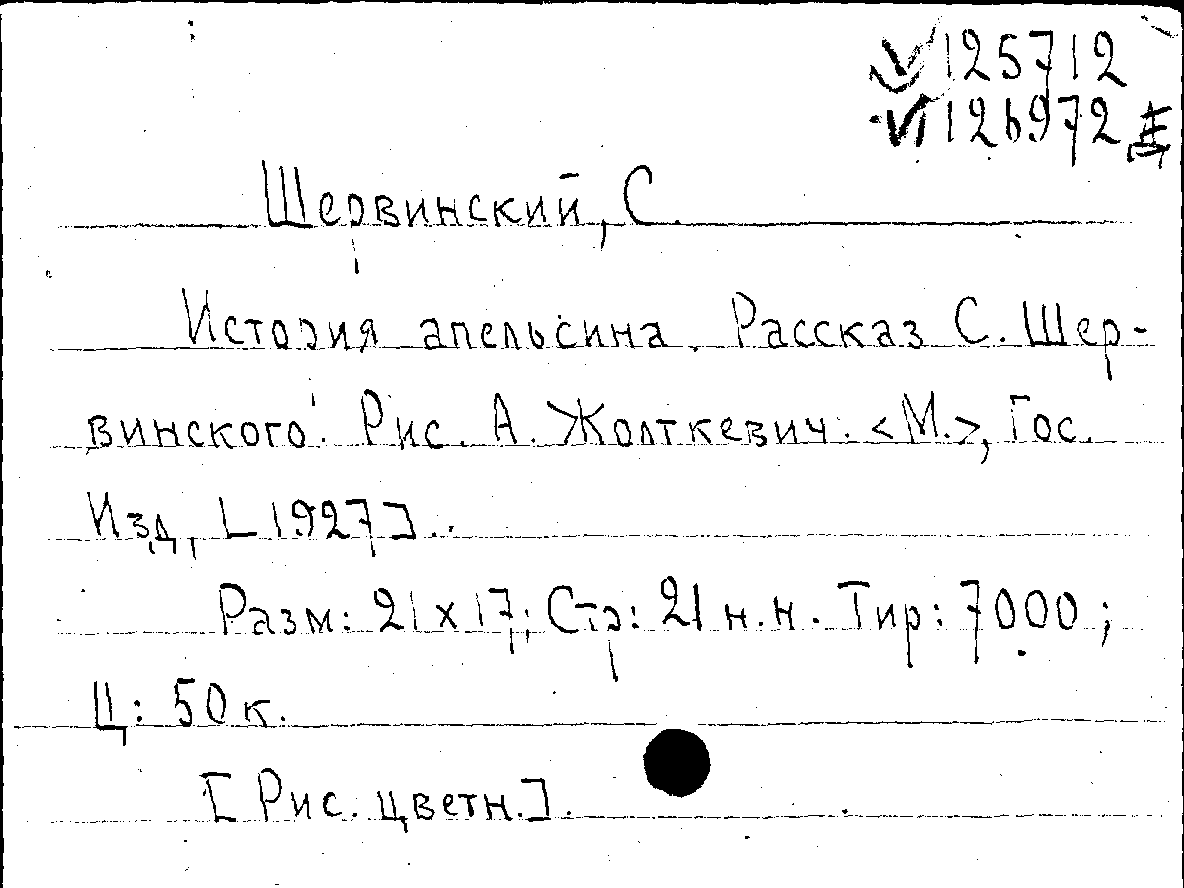 V 125712
VI 126972
Шервинский, С.
История апельсина. Рассказ С. Шер-
винского. Рис. А. Жолткевич. <М.>, Гос.
Изд, [1927].
Разм: 21 х 17; Стр: 21 н.н. Тир: 7000;
Ц: 50 к.
[Рис. цветн.].